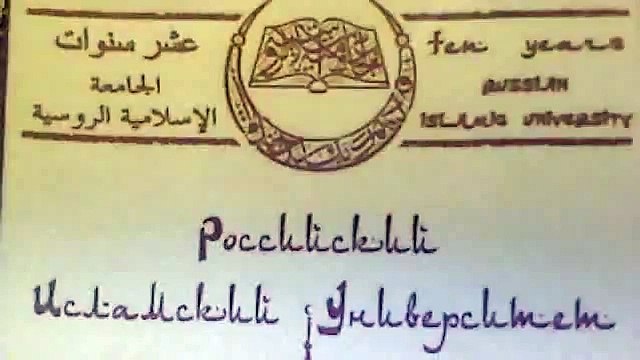 عشر سنوات
الجامعة
الإسلامية الروسية
ten years
RUSSIAN
ISLAMIC UNIVERSITY
Российский
Исламский Университет